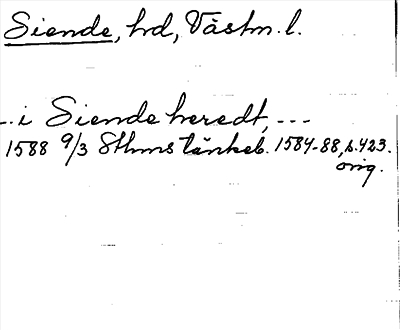 Siende, hd, Västm. l.
- - i Siende heredt, - - -
1588 9/3 Sthms tänkeb. 1584-88, s. 423.
orig.